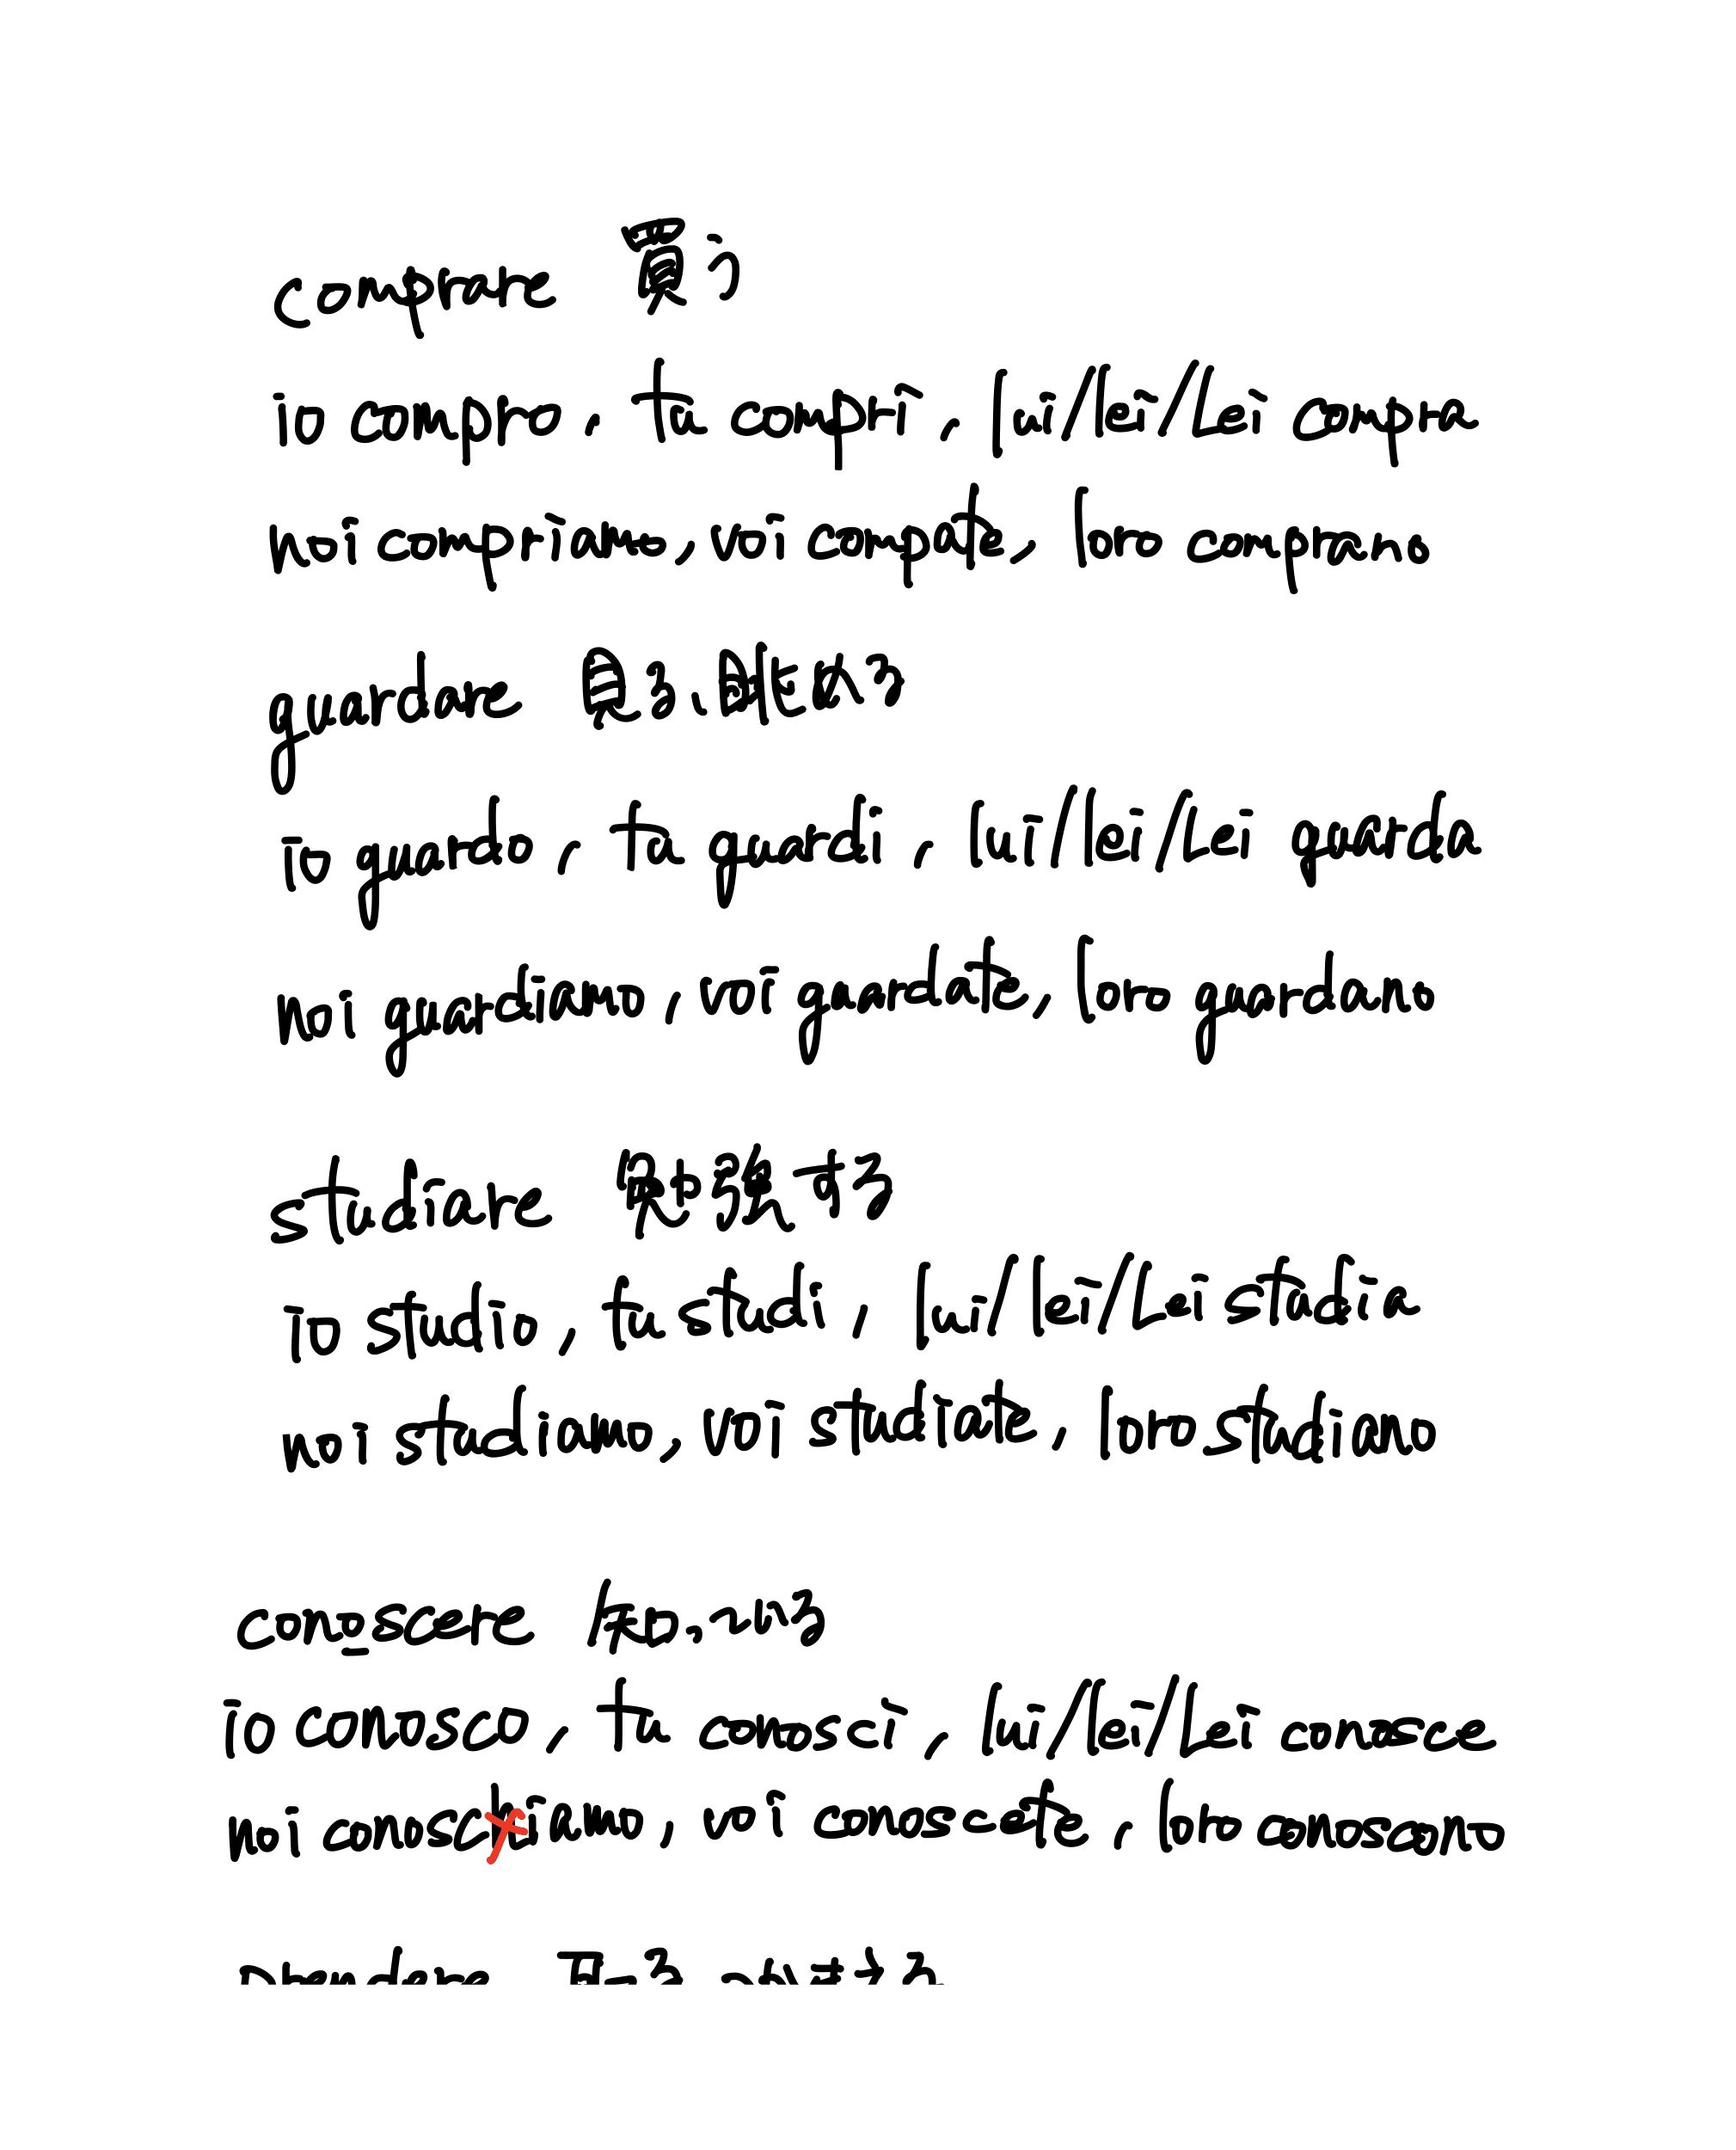 comprare 買う
io compro, tu compri, lui/lei/Lei compra
noi compriamo, voi comprate, loro comprano
guardare 見る、眺める
io guardo, tu guardi, lui/lei/Lei guarda
noi guardiamo, voi guardate, loro guardano
studiare 勉強する
io studio, tu studi, lui/lei/Lei studia
noi studiamo, voi studiate, loro studiano
conoscere 知っいる
io conosco, tu conosci, lui/lei/Lei conosce
noi conoschiamo, voi conoscete, loro conoscono